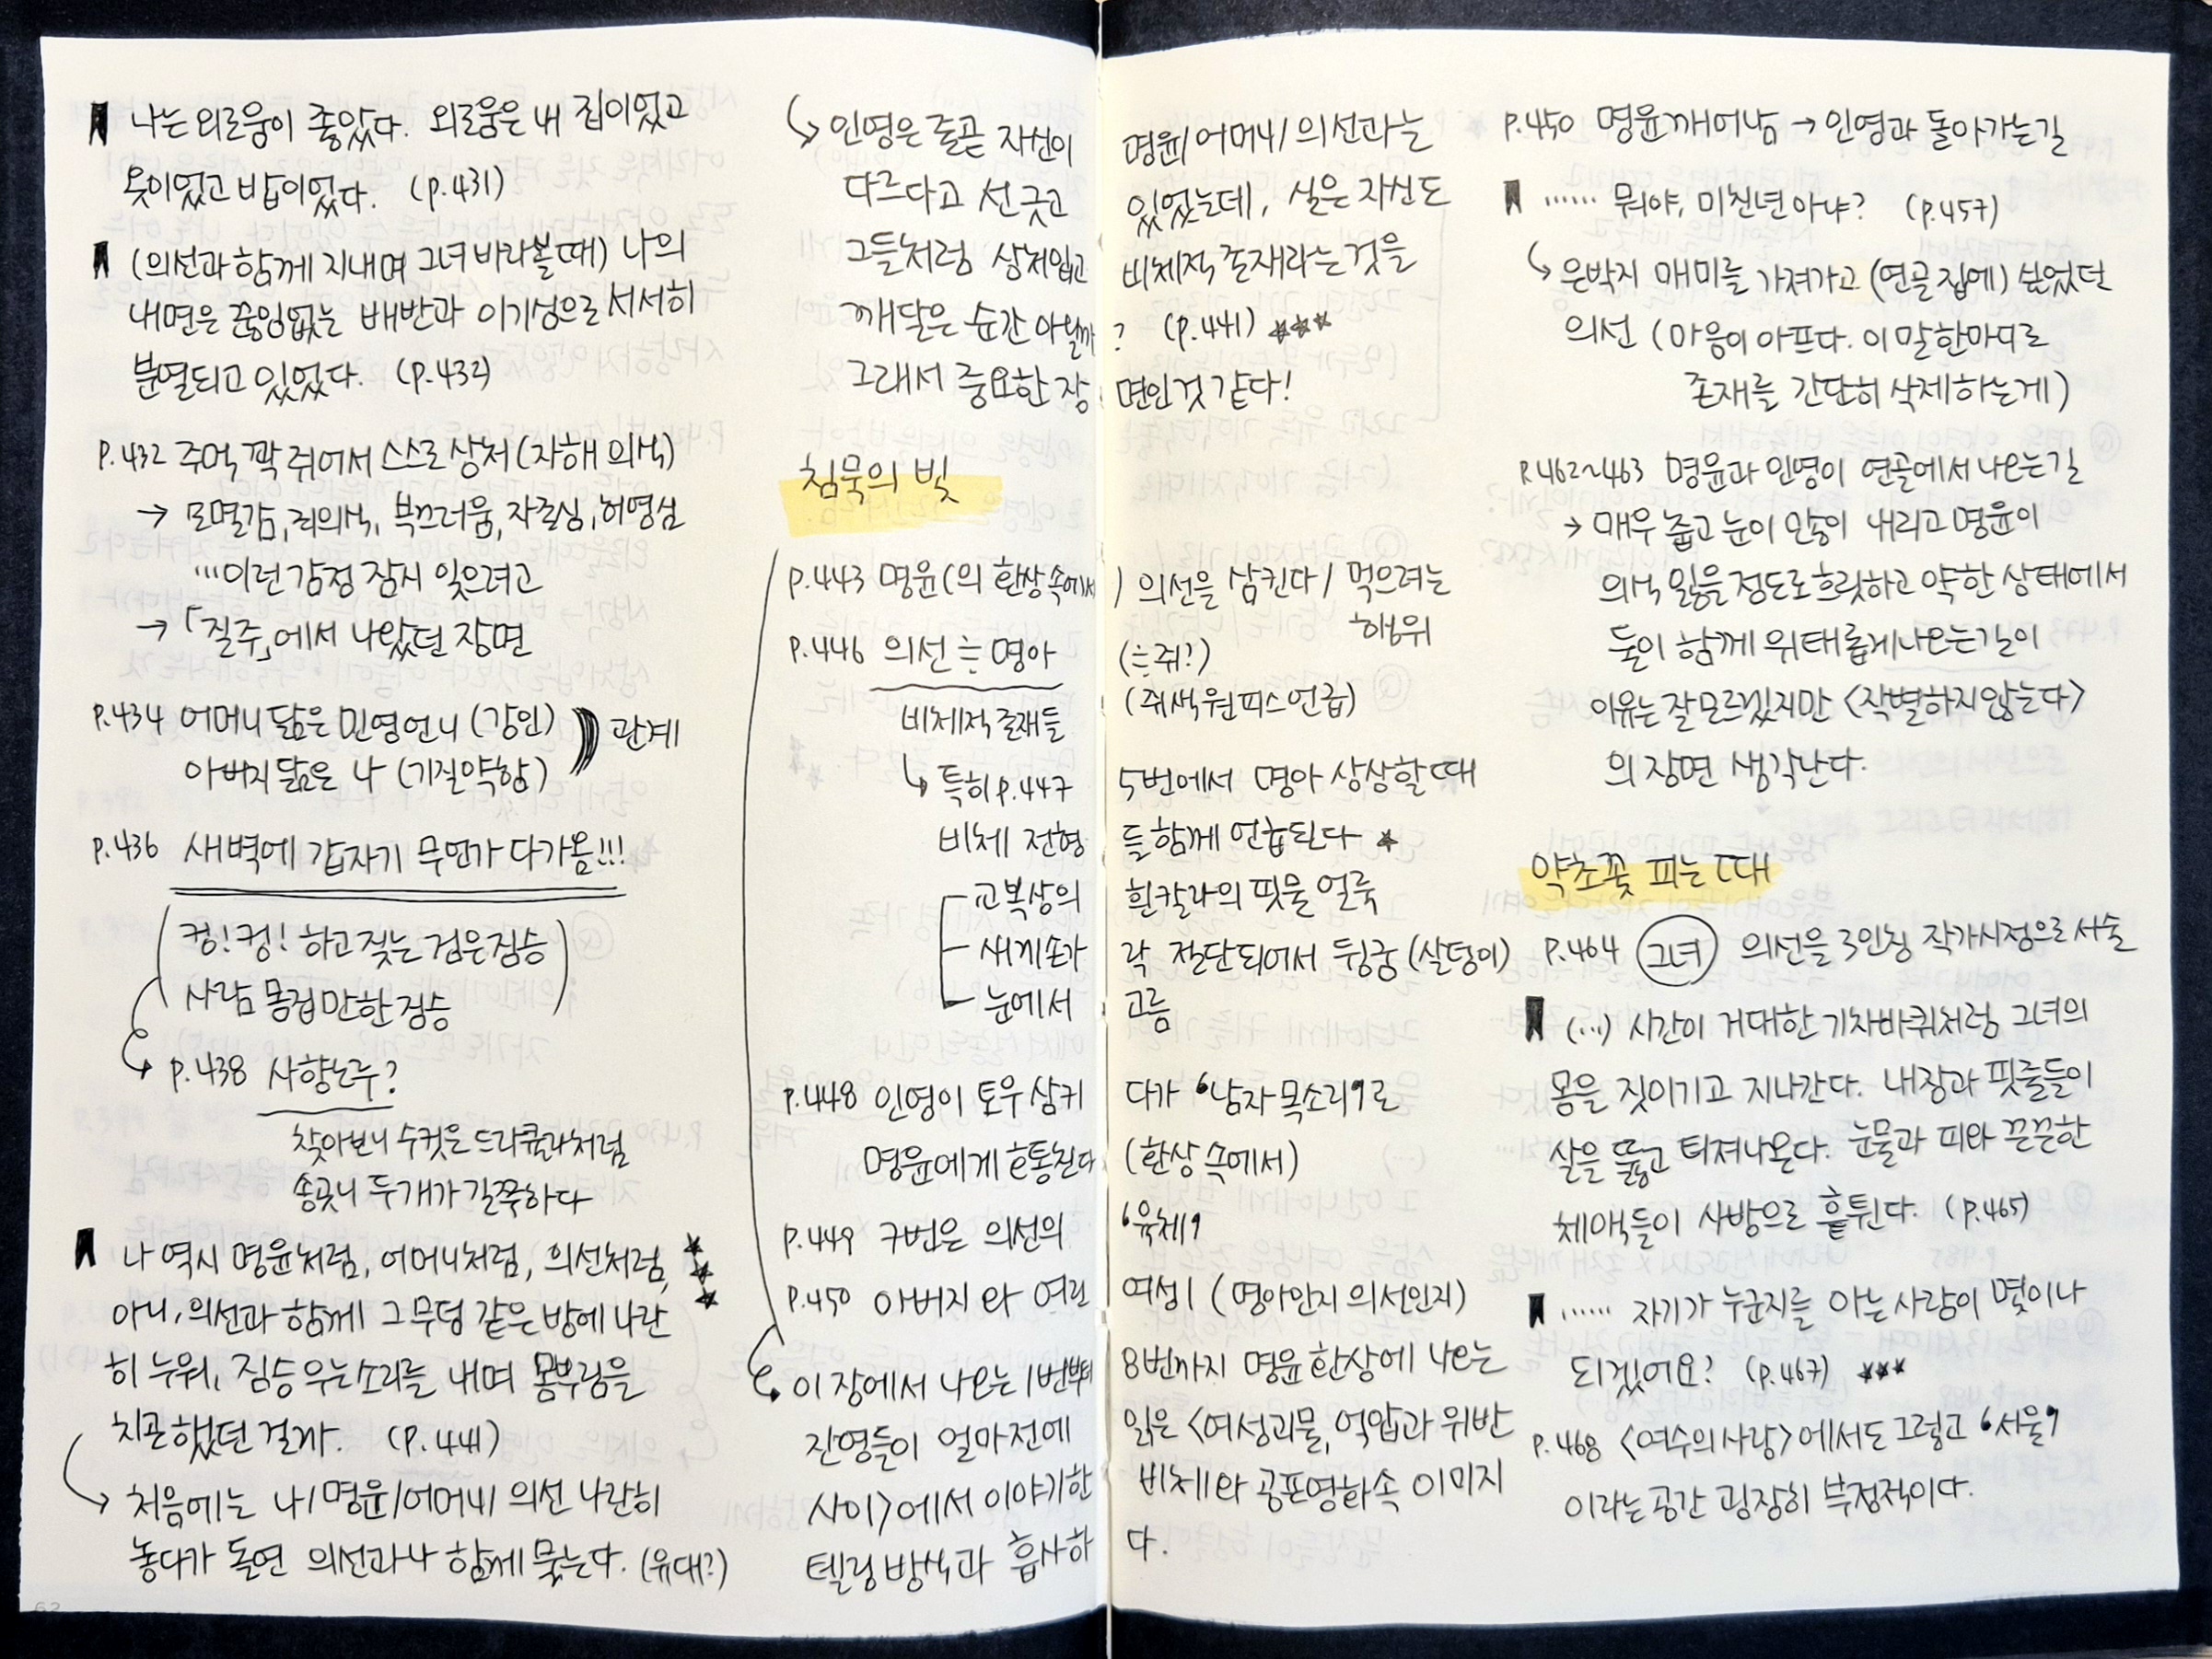 나는 외로움이 좋았다. 외로움은 내 집이었고
옷이었고 밥이었다. (p.431)
(의선과 함께 지내며 그녀 바라볼 때) 나의
내면은 끊임없는 배반과 이기성으로 서서히
분열되고 있었다. (p.432)
P.432 주먹 꽉 쥐어서 스스로 상처 (자해 의식)
→ 모멸감, 죄의식, 부끄러움, 자존심, 허영심
…이런 감정 잠시 잊으려고
→ 「질주」에서 나왔던 장면
P.434 어머니 닮은 민영언니 (강인)
아버지 닮은 나 (기질약함) ))) 관계
P.436 새벽에 갑자기 무언가 다가옴!!!
(컹! 컹! 하고 짖는 검은 짐승
사람 몸집만한 짐승)
↳ P.438 사향노루?
찾아보니 수컷은 드라큘라처럼
송곳니 두개가 길쭉하다
나 역시 명윤처럼, 어머니처럼, 의선처럼, ★★★
아니, 의선과 함께 그 무덤 같은 방에 나란
히 누워, 짐승 우는소리를 내며 몸부림을
치곤 했던 걸까. (P.441)
→ 처음에는 나/명윤/어머니/의선 나란히
놓다가 돌연 의선과 나 함께 묶는다. (유대?)
↳ 인영은 줄곧 자신이 명윤/어머니/의선과는
다르다고 선 긋고 있었는데, 실은 자신도
그들처럼 상처입고 비체적 존재라는 것을
깨달은 순간 아닐까? (p.441) ★★★
그래서 중요한 장면인 것 같다!
침묵의 빛
P.443 명윤(의 환상 속에서) 의선을 삼킨다/ 먹으려는
행위
P.446 의선 ≒ 명아 (≒쥐?)
(쥐색 원피스 언급)
비체적 존재들
↳ 특히 p.447 5번에서 명아 상상할 때
비체 전형들 함께 언급된다 ★
교복상의 흰칼라의 핏물 얼룩
새끼손가락 절단되어서 뒹굼 (살덩이)
눈에서 고름
P.448 인영이 토우 삼키다가 '남자 목소리'로
명윤에게 호통친다 (환상 속에서)
P.449 7번은 의선의 '육체'
P.450 아버지와 여린 여성| (명아인지 의선인지)
↳ 이 장에서 나오는 1번부터 8번까지 명윤 환상에 나오는
잔영들이 얼마전에 읽은 <여성괴물, 억압과 위반
사이>에서 이야기한 비체와 공포영화 속 이미지
텔링 방식과 흡사하다.
P.450 명윤 깨어남 → 인영과 돌아가는 길
…… 뭐야, 미친년 아냐? (p.457)
↳ 은박지 매미를 가져가고 (연골 집에) 쉬었던
의선 (마음이 아프다. 이 말 한마디로
존재를 간단히 삭제하는게)
P.462~463 명윤과 인영이 연골에서 나오는 길
→ 매우 춥고 눈이 많이 내리고 명윤이
의식 잃을 정도로 흐릿하고 약한 상태에서
둘이 함께 위태롭게 나오는 길이
이유는 잘 모르겠지만 <작별하지 않는다>
의 장면 생각난다.
약초꽃 피는 때
P.464 그녀 의선을 3인칭 작가시점으로 서술
(…) 시간이 거대한 기차바퀴처럼 그녀의
몸을 짓이기고 지나간다. 내장과 핏줄들이
살을 뚫고 터져나온다. 눈물과 피와 끈끈한
체액들이 사방으로 흩튄다. (p.465)
…… 자기가 누군지를 아는 사람이 몇이나
되겠어요? (p.467) ★★★
P.468 <여수의 사랑>에서도 그렇고 '서울'
이라는 공간 굉장히 부정적이다.
62